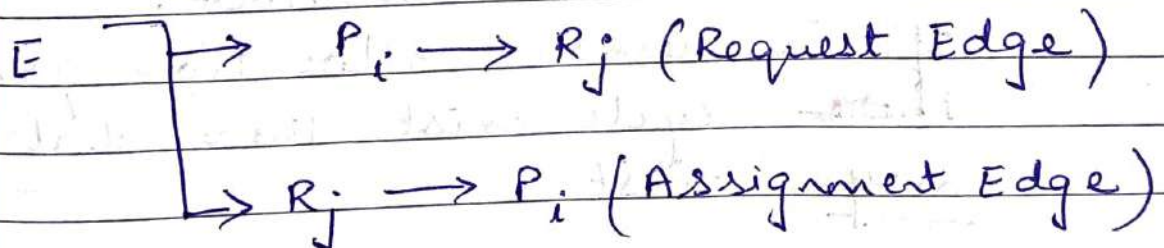 E → P_i → R_j (Request Edge)
→ R_j → P_i (Assignment Edge)